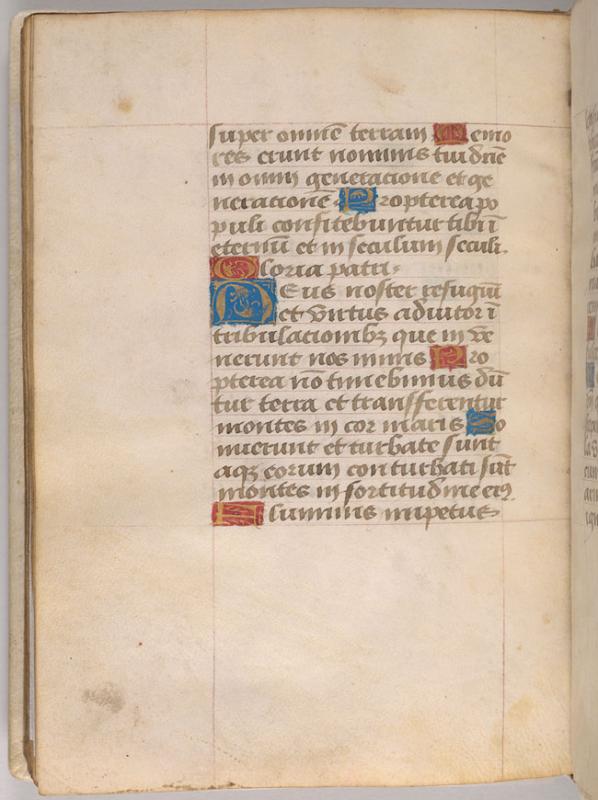 super omnē terram Memo
res erunt nominis tui dn̄e
in omni generacione et ge
neracionē. Propterea po
puli confitebuntur tibi ī
eternū et in seculum seculi.
Gloria patri.
Deus noster refugiū
et virtus adiutor ī
tribulacionibꝫ que in ve
nerunt nos nimis Pro
pterea nō timebimus dū
tur terra et transfferentur
montes in cor maris So
nuerunt et turbate sunt
aqꝫ eorum conturbati sūt
montes in fortitudine eiꝰ
Fluminis impetus